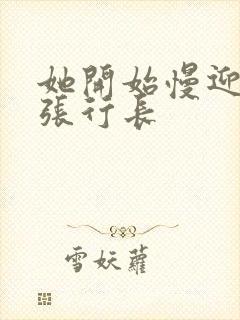 她開始慢迎
張行長
雪妖蘿